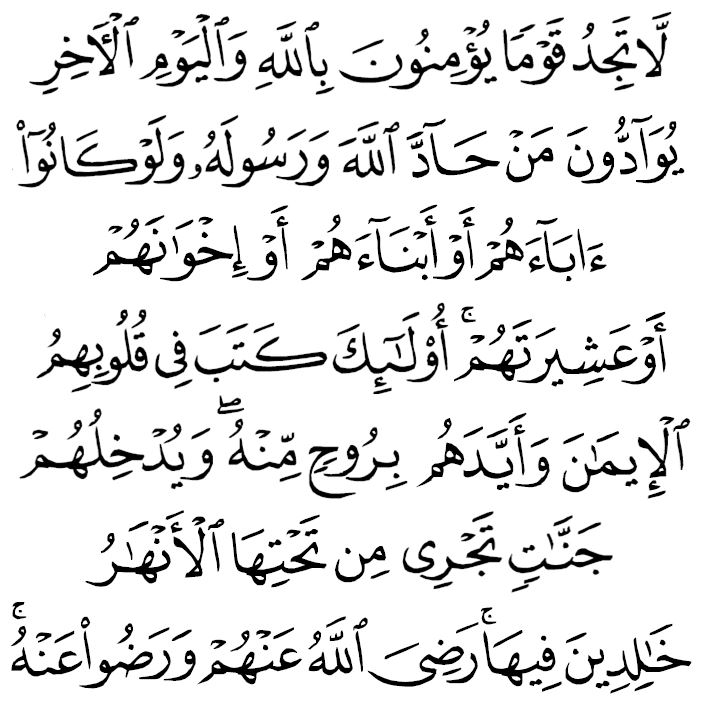 لَّا تَجِدُ قَوْمًا يُؤْمِنُونَ بِٱللَّهِ وَٱلْيَوْمِ ٱلْأَخِرِ
يُوَآدُّونَ مَنْ حَآدَّ ٱللَّهَ وَرَسُولَهُۥ وَلَوْ كَانُوٓا۟
ءَابَآءَهُمْ أَوْ أَبْنَآءَهُمْ أَوْ إِخْوَٰنَهُمْ
أَوْ عَشِيرَتَهُمْ ۚ أُو۟لَـٰٓئِكَ كَتَبَ فِى قُلُوبِهِمُ
ٱلْإِيمَـٰنَ وَأَيَّدَهُم بِرُوحٍ مِّنْهُ ۖ وَيُدْخِلُهُمْ
جَنَّـٰتٍ تَجْرِى مِن تَحْتِهَا ٱلْأَنْهَـٰرُ
خَـٰلِدِينَ فِيهَا ۚ رَضِىَ ٱللَّهُ عَنْهُمْ وَرَضُوا۟ عَنْهُ ۚ